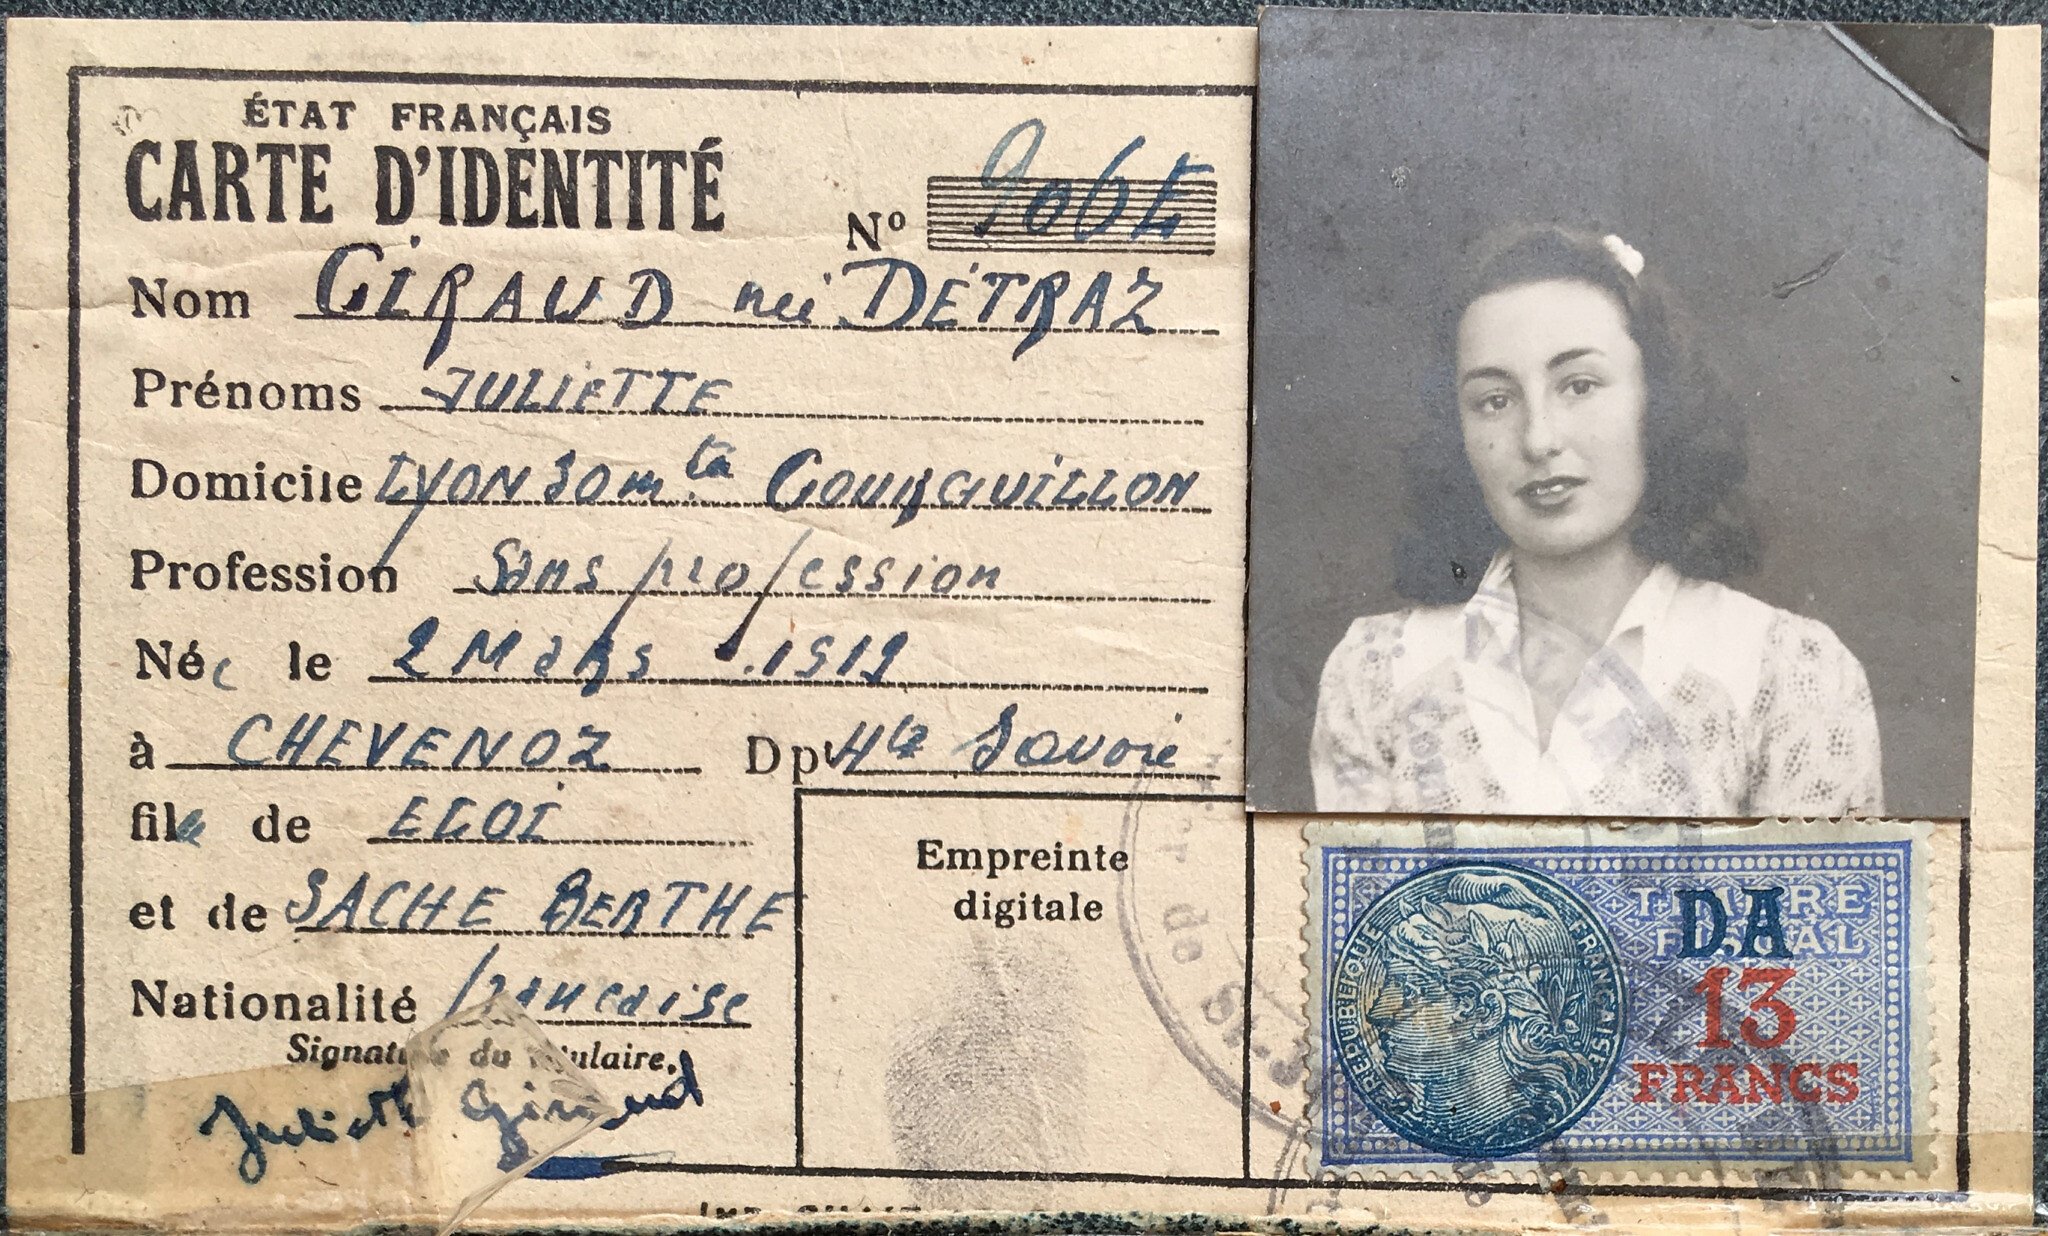 ÉTAT FRANÇAIS
CARTE D'IDENTITÉ
Nº 906
Nom GIRAUD née DÉTRAZ
Prénoms JULIETTE
Domicile LYON 30 m.tée GOURGUILLON
Profession Sans profession
Née le 2 Mars 1919
à CHEVENOZ Dpt Hte Savoie
fille de ELOI
et de SACHE BERTHE
Nationalité française
Signature du titulaire.
Juliette Giraud
Empreinte
digitale
TIMBRE
FISCAL
DA
13
FRANCS
RÉPUBLIQUE FRANÇAISE